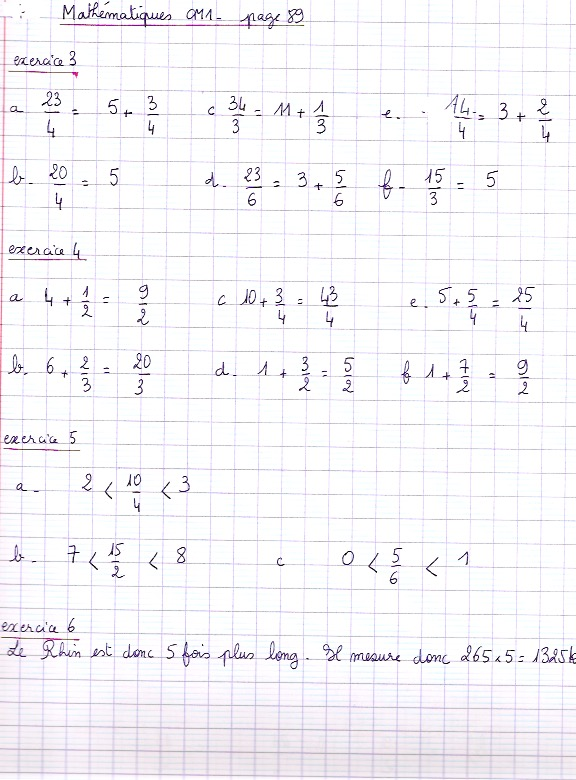 Mathématiques CM1- page 89
exercice 3
a 23/4 = 5 + 3/4 c 34/3 = 11 + 1/3 e. 14/4 = 3 + 2/4
b- 20/4 = 5 d. 23/6 = 3 + 5/6 f - 15/3 = 5
exercice 4
a 4 + 1/2 = 9/2 c 10 + 3/4 = 43/4 e. 5 + 5/4 = 25/4
b. 6 + 2/3 = 20/3 d- 1 + 3/2 = 5/2 f 1 + 7/2 = 9/2
exercice 5
a- 2 < 10/4 < 3
b- 7 < 15/2 < 8 c 0 < 5/6 < 1
exercice 6
Le Rhin est donc 5 fois plus long. Il mesure donc 265 x 5 = 1325k